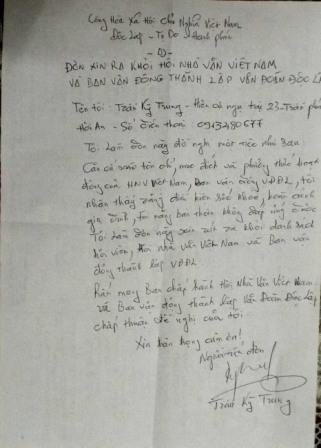 Cộng Hòa Xã Hội Chủ Nghĩa Việt Nam
Độc Lập - Tự Do - Hạnh phúc
ĐƠN XIN RA KHỎI HỘI NHÀ VĂN VIỆT NAM
VÀ BAN VẬN ĐỘNG THÀNH LẬP VĂN ĐOÀN ĐỘC LẬ
Tên tôi: Trần Kỳ Trung - Hiện cư ngụ tại 23- Trần
Hội An - Số điện thoại: 0913480677
Tôi làm đơn này đề nghị một việc như sau:
Căn cứ tôn chỉ, mục đích và phương thức hoạt
động của HNV Việt Nam, Ban vận động VĐĐL, tôi
nhận thấy rằng điều kiện sức khỏe, hoàn cảnh
gia đình, bản thân không đáp ứng được
Tôi làm đơn này xin rút ra khỏi danh sách
hội viên, Hội nhà văn Việt Nam và Ban vận
động thành lập VĐĐL
Rất mong Ban chấp hành Hội Nhà Văn Việt Nam
và Ban vận động thành lập Văn Đoàn Độc Lập
chấp thuận đề nghị của tôi
Xin trân trọng cảm ơn!
Người viết đơn
Trần Kỳ Trung